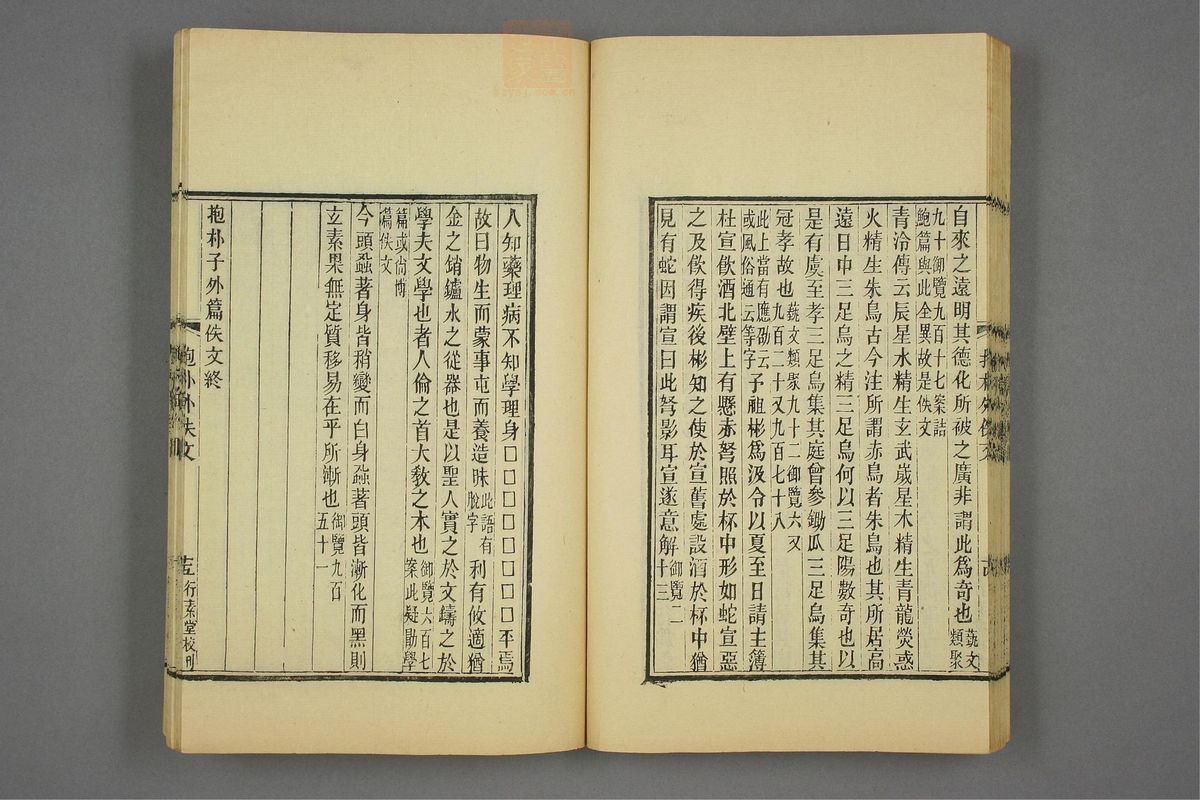 自來之遠明其德化所被之廣非謂此爲奇也藝文類聚
九十御覽九百十七案詰鮑篇與此全異故是佚文
青泠傳云辰星水精生玄武歲星木精生青龍熒惑
火精生朱鳥古今注所謂赤烏者朱鳥也其所居高
遠日中三足烏之精三足烏何以三足陽數奇也以
是有虞至孝三足烏集其庭曾參鋤瓜三足烏集其
冠孝故也藝文類聚九十二御覽六又九百二十又九百七十八
此上當有應劭云或風俗通云等字予祖彬爲汲令以夏至日請主簿
杜宣飲酒北壁上有懸赤弩照於杯中形如蛇宣惡
之及飲得疾後彬知之使於宣舊處設酒於杯中猶
見有蛇因謂宣曰此弩影耳宣遂意解御覽二十三
人知藥理病不知學理身□□□□□□□□平焉
故曰物生而蒙事屯而養造昧此語有脫字利有攸適猶
金之銷鑪水之從器也是以聖人實之於文鑄之於
學夫文學也者人倫之首大教之本也御覽六百七案此疑勖學
篇或尚博篇佚文
今頭蝨著身皆稍變而白身蝨著頭皆漸化而黑則
玄素果無定質移易在乎所漸也御覽九百五十一
抱朴子外篇佚文終
抱朴外佚文
行素堂校刊